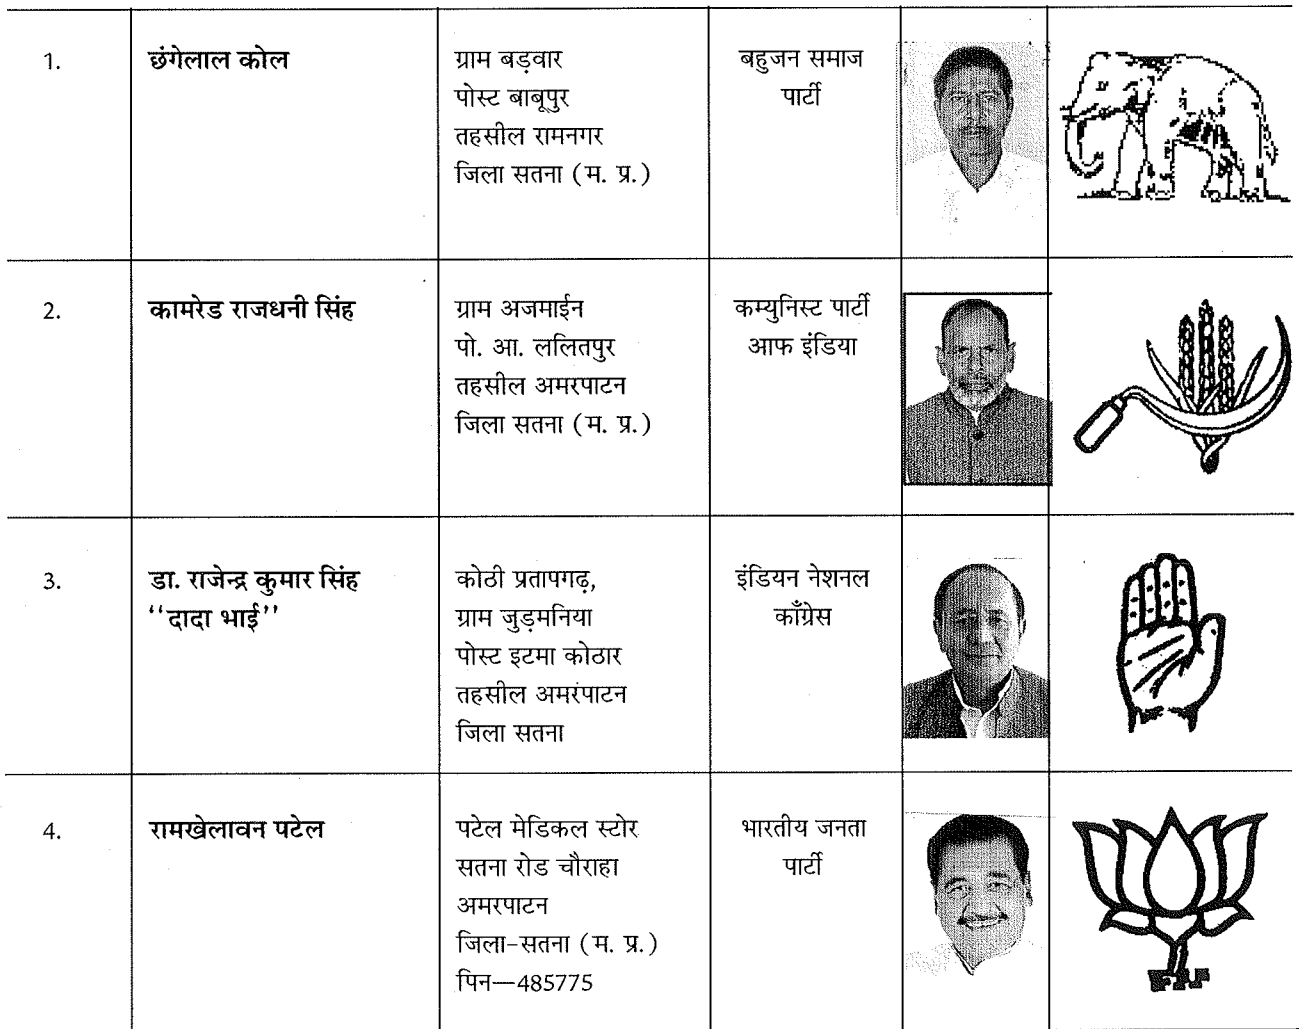 1.
छंगेलाल कोल
ग्राम बड़वार
पोस्ट बाबूपुर
तहसील रामनगर
जिला सतना (म. प्र.)
बहुजन समाज
पार्टी
2.
कामरेड राजधनी सिंह
ग्राम अजमाईन
पो. आ. ललितपुर
तहसील अमरपाटन
जिला सतना (म. प्र.)
कम्युनिस्ट पार्टी
आफ इंडिया
3.
डा. राजेन्द्र कुमार सिंह
‘‘दादा भाई’’
कोठी प्रतापगढ़,
ग्राम जुड़मनिया
पोस्ट इटमा कोठार
तहसील अमरंपाटन
जिला सतना
इंडियन नेशनल
काँग्रेस
4.
रामखेलावन पटेल
पटेल मेडिकल स्टोर
सतना रोड चौराहा
अमरपाटन
जिला-सतना (म. प्र.)
पिन—485775
भारतीय जनता
पार्टी